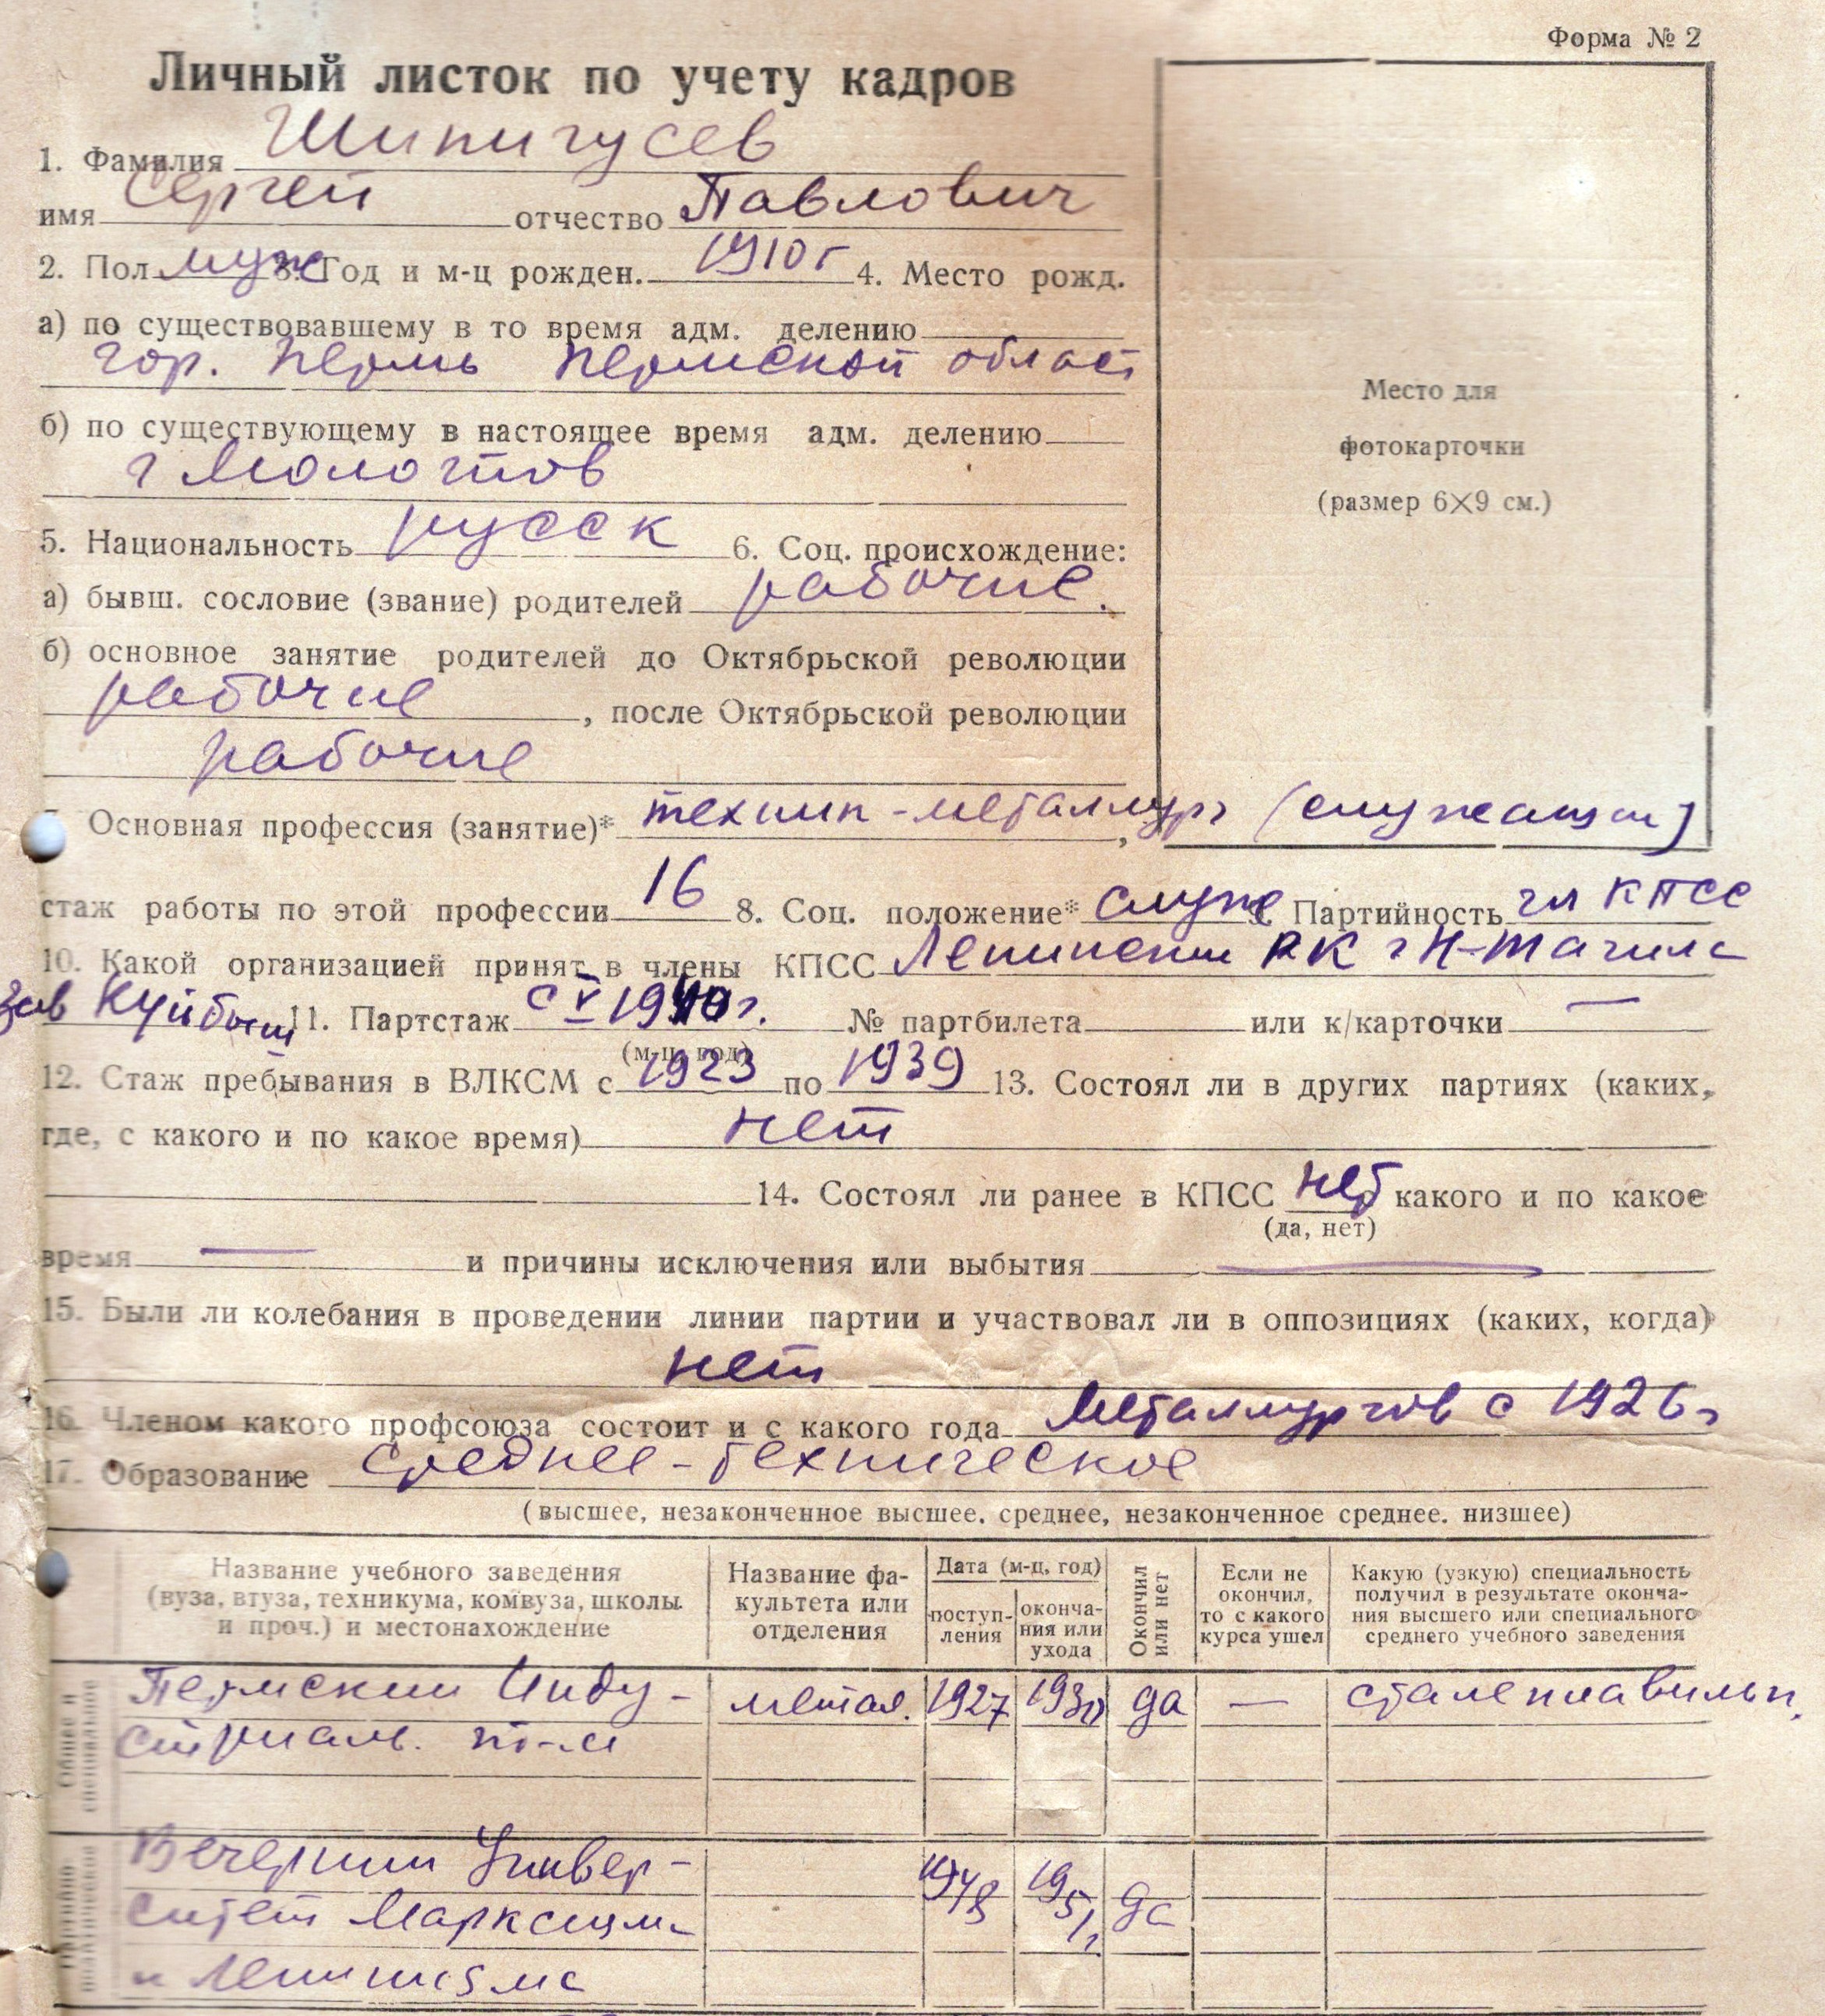 Форма № 2
Личный листок по учету кадров
1. Фамилия Шипигусев
имя Сергей отчество Павлович
2. Пол муж 3. Год и м-ц рожден. 1910 г 4. Место рожд.
а) по существовавшему в то время адм. делению
гор. Пермь Пермской област
б) по существующему в настоящее время адм. делению
г Молотов
5. Национальность русск 6. Соц. происхождение:
а) бывш. сословие (звание) родителей рабочие.
б) основное занятие родителей до Октябрьской революции
рабочие, после Октябрьской революции
рабочие
Место для
фотокарточки
(размер 6×9 см.)
Основная профессия (занятие)* техник-металлург, (служащий)
стаж работы по этой профессии 16 8. Соц. положение* служ 9. Партийность чл КПСС
10. Какой организацией принят в члены КПСС Ленинским РК г Н-Тагила
11. Партстаж с V 1940 г. № партбилета или к/карточки —
(м-ц, год)
12. Стаж пребывания в ВЛКСМ с 1923 по 1939 13. Состоял ли в других партиях (каких,
где, с какого и по какое время) нет
14. Состоял ли ранее в КПСС нет какого и по какое
(да, нет)
время — и причины исключения или выбытия —
15. Были ли колебания в проведении линии партии и участвовал ли в оппозициях (каких, когда)
нет
16. Членом какого профсоюза состоит и с какого года Металлургов с 1926 г
17. Образование среднее-техническое
(высшее, незаконченное высшее. среднее, незаконченное среднее. низшее)
Название учебного заведения
(вуза, втуза, техникума, комвуза, школы
и проч.) и местонахождение
Название фа-
культета или
отделения
Дата (м-ц, год)
поступ-
ления
оконча-
ния или
ухода
Окончил
или нет
Если не
окончил,
то с какого
курса ушел
Какую (узкую) специальность
получил в результате оконча-
ния высшего или специального
среднего учебного заведения
Общее и
специальное
Пермский Инду- метал. 1927 1930 да — сталеплавильн.
стриаль. т-м
Вечерний Универ- 1948 1951 да
ситет Марксизма
и Ленинизма